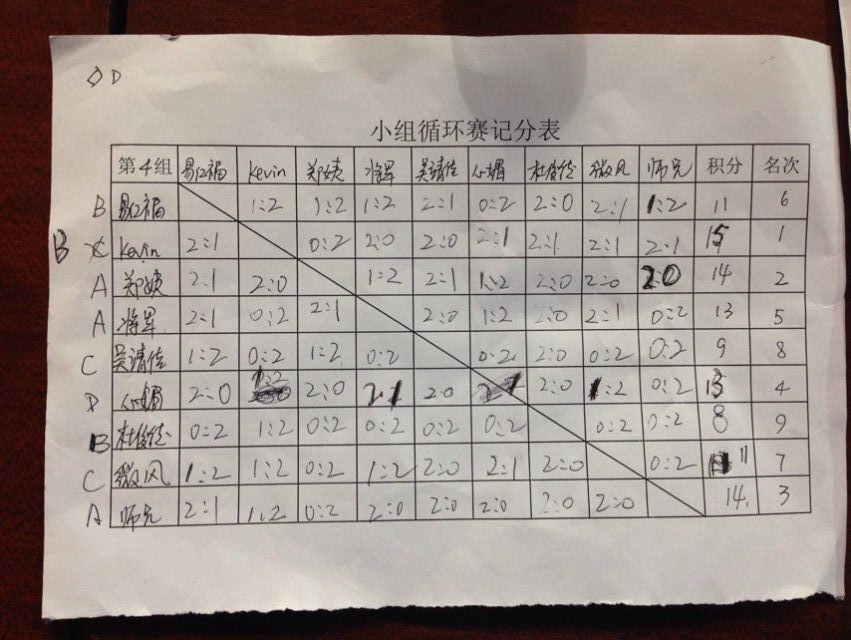 D
小组循环赛记分表
第4组 易江福 Kevin 郑姨 将军 吴请佳 心媚 杜俊俊 微风 师兄 积分 名次
B 易江福 1:2 1:2 1:2 2:1 0:2 2:0 2:1 1:2 11 6
B Kevin 2:1 0:2 2:0 2:0 2:1 2:1 2:1 2:1 15 1
A 郑姨 2:1 2:0 1:2 2:1 1:2 2:0 2:0 2:0 14 2
A 将军 2:1 0:2 2:1 2:0 1:2 2:0 2:1 0:2 13 5
C 吴请佳 1:2 0:2 1:2 0:2 0:2 2:0 0:2 0:2 9 8
D 心媚 2:0 1:2 2:0 2:1 2:0 2:0 1:2 0:2 13 4
B 杜俊俊 0:2 1:2 0:2 0:2 0:2 0:2 0:2 0:2 8 9
C 微风 1:2 1:2 0:2 1:2 2:0 2:1 2:0 0:2 11 7
A 师兄 2:1 1:2 0:2 2:0 2:0 2:0 2:0 2:0 14 3